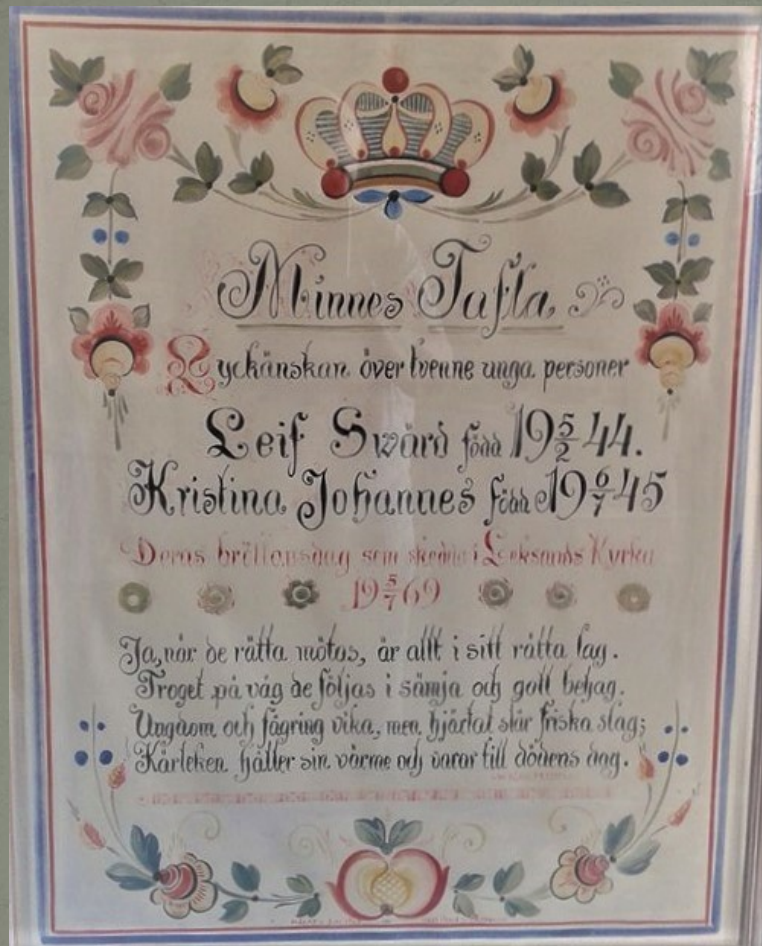 Minnes Tafla
Lyckönskan över tvenne unga personer
Leif Swärd född 19 5/2 44.
Kristina Johannes född 19 6/7 45
Deras bröllopsdag som skedde i Leksands Kyrka
19 5/7 69
Ja, när de rätta mötas, är allt i sitt rätta lag.
Troget på väg de följas i sämja och gott behag.
Ungdom och fägring vika, men hjärtat slår friska slag;
Kärleken håller sin värme och varar till dödens dag.